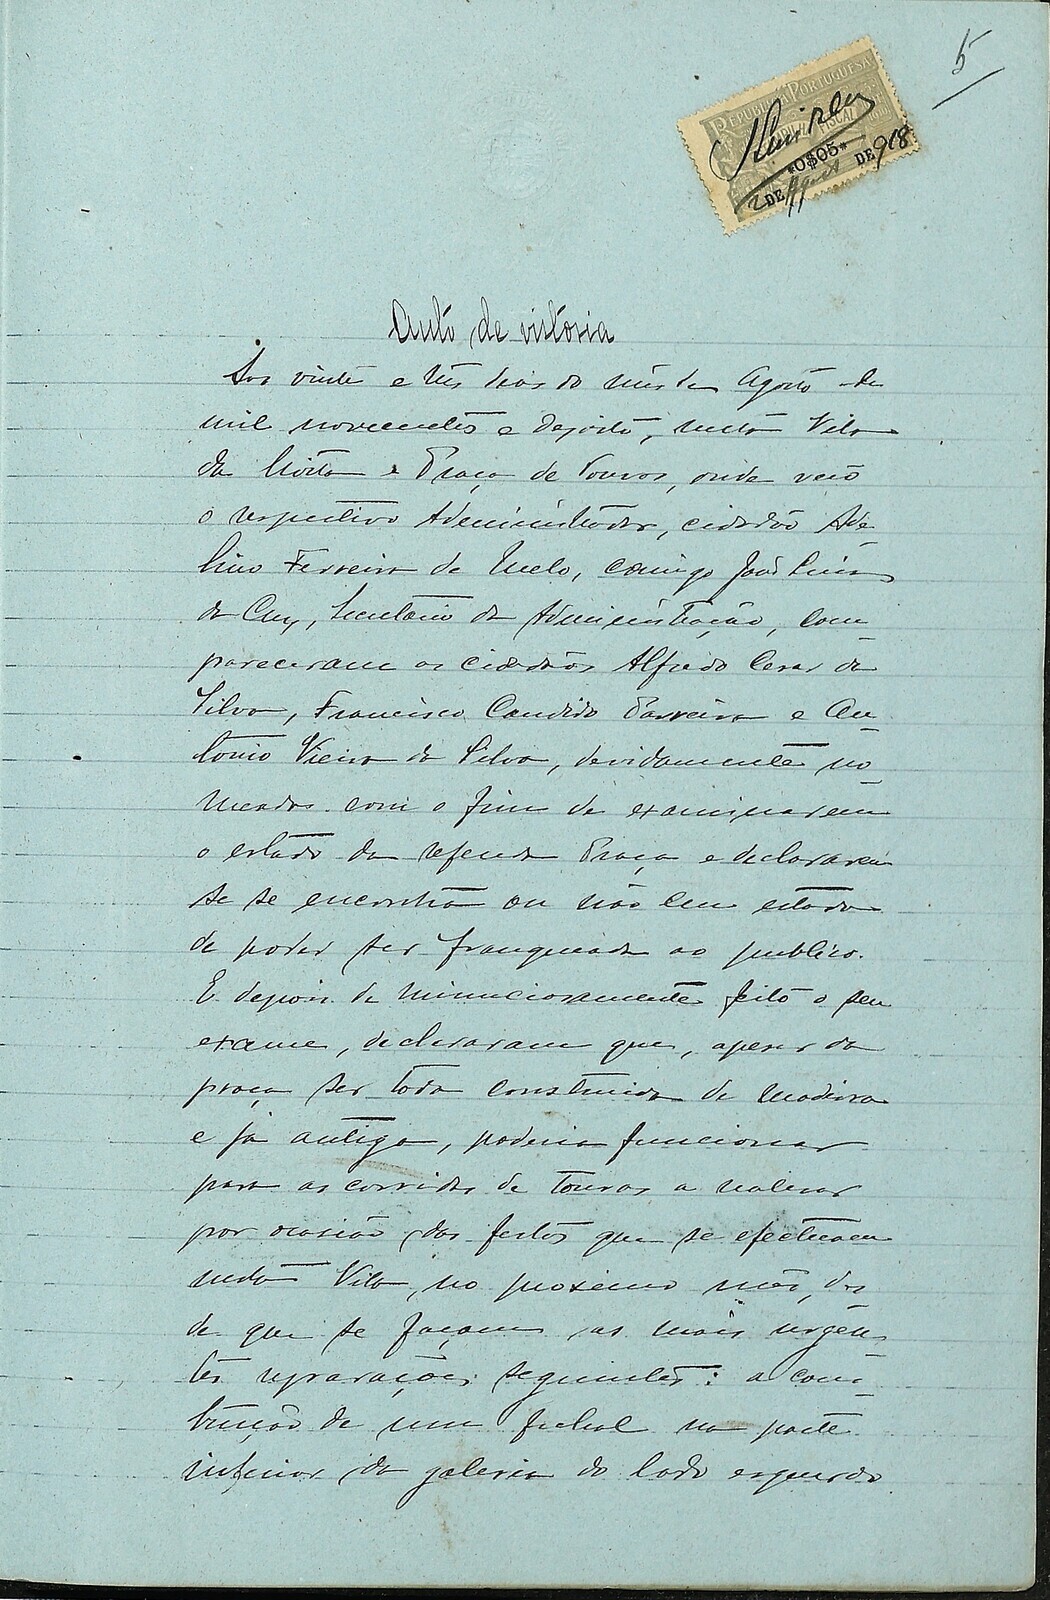 5
REPUBLICA PORTUGUESA
FISCAL
*0$05*
2 DE Agosto DE 918
Auto de vistoria
Aos vinte e três dias do mês de Agosto de
mil novecentos e dezoito, nesta Vila
da Moita e Praça de Touros, onde veio
o respectivo Administrador, cidadão Ade-
lino Ferreira de Melo, comigo João Luis
da Cruz, Secretário da Administração, com-
pareceram os cidadãos Alfredo Cesar da
Silva, Francisco Candido Parreira e An-
tonio Vieira da Silva, devidamente no-
meados com o fim de examinarem
o estado da referida Praça e declararem
se se encontra ou não em estado
de poder ser franqueada ao publico.
E depois de minuciosamente feito o seu
exame, declararam que, apesar da
praça ser toda construida de madeira
e já antiga, poderia funcionar
para as corridas de touros a realisar
por ocasião das festas que se efectuam
nesta Vila, no proximo mês, des-
de que se façam as mais urgen-
tes reparações seguintes: a cons-
trução de um fechal na parte
inferior da galeria do lado esquerdo